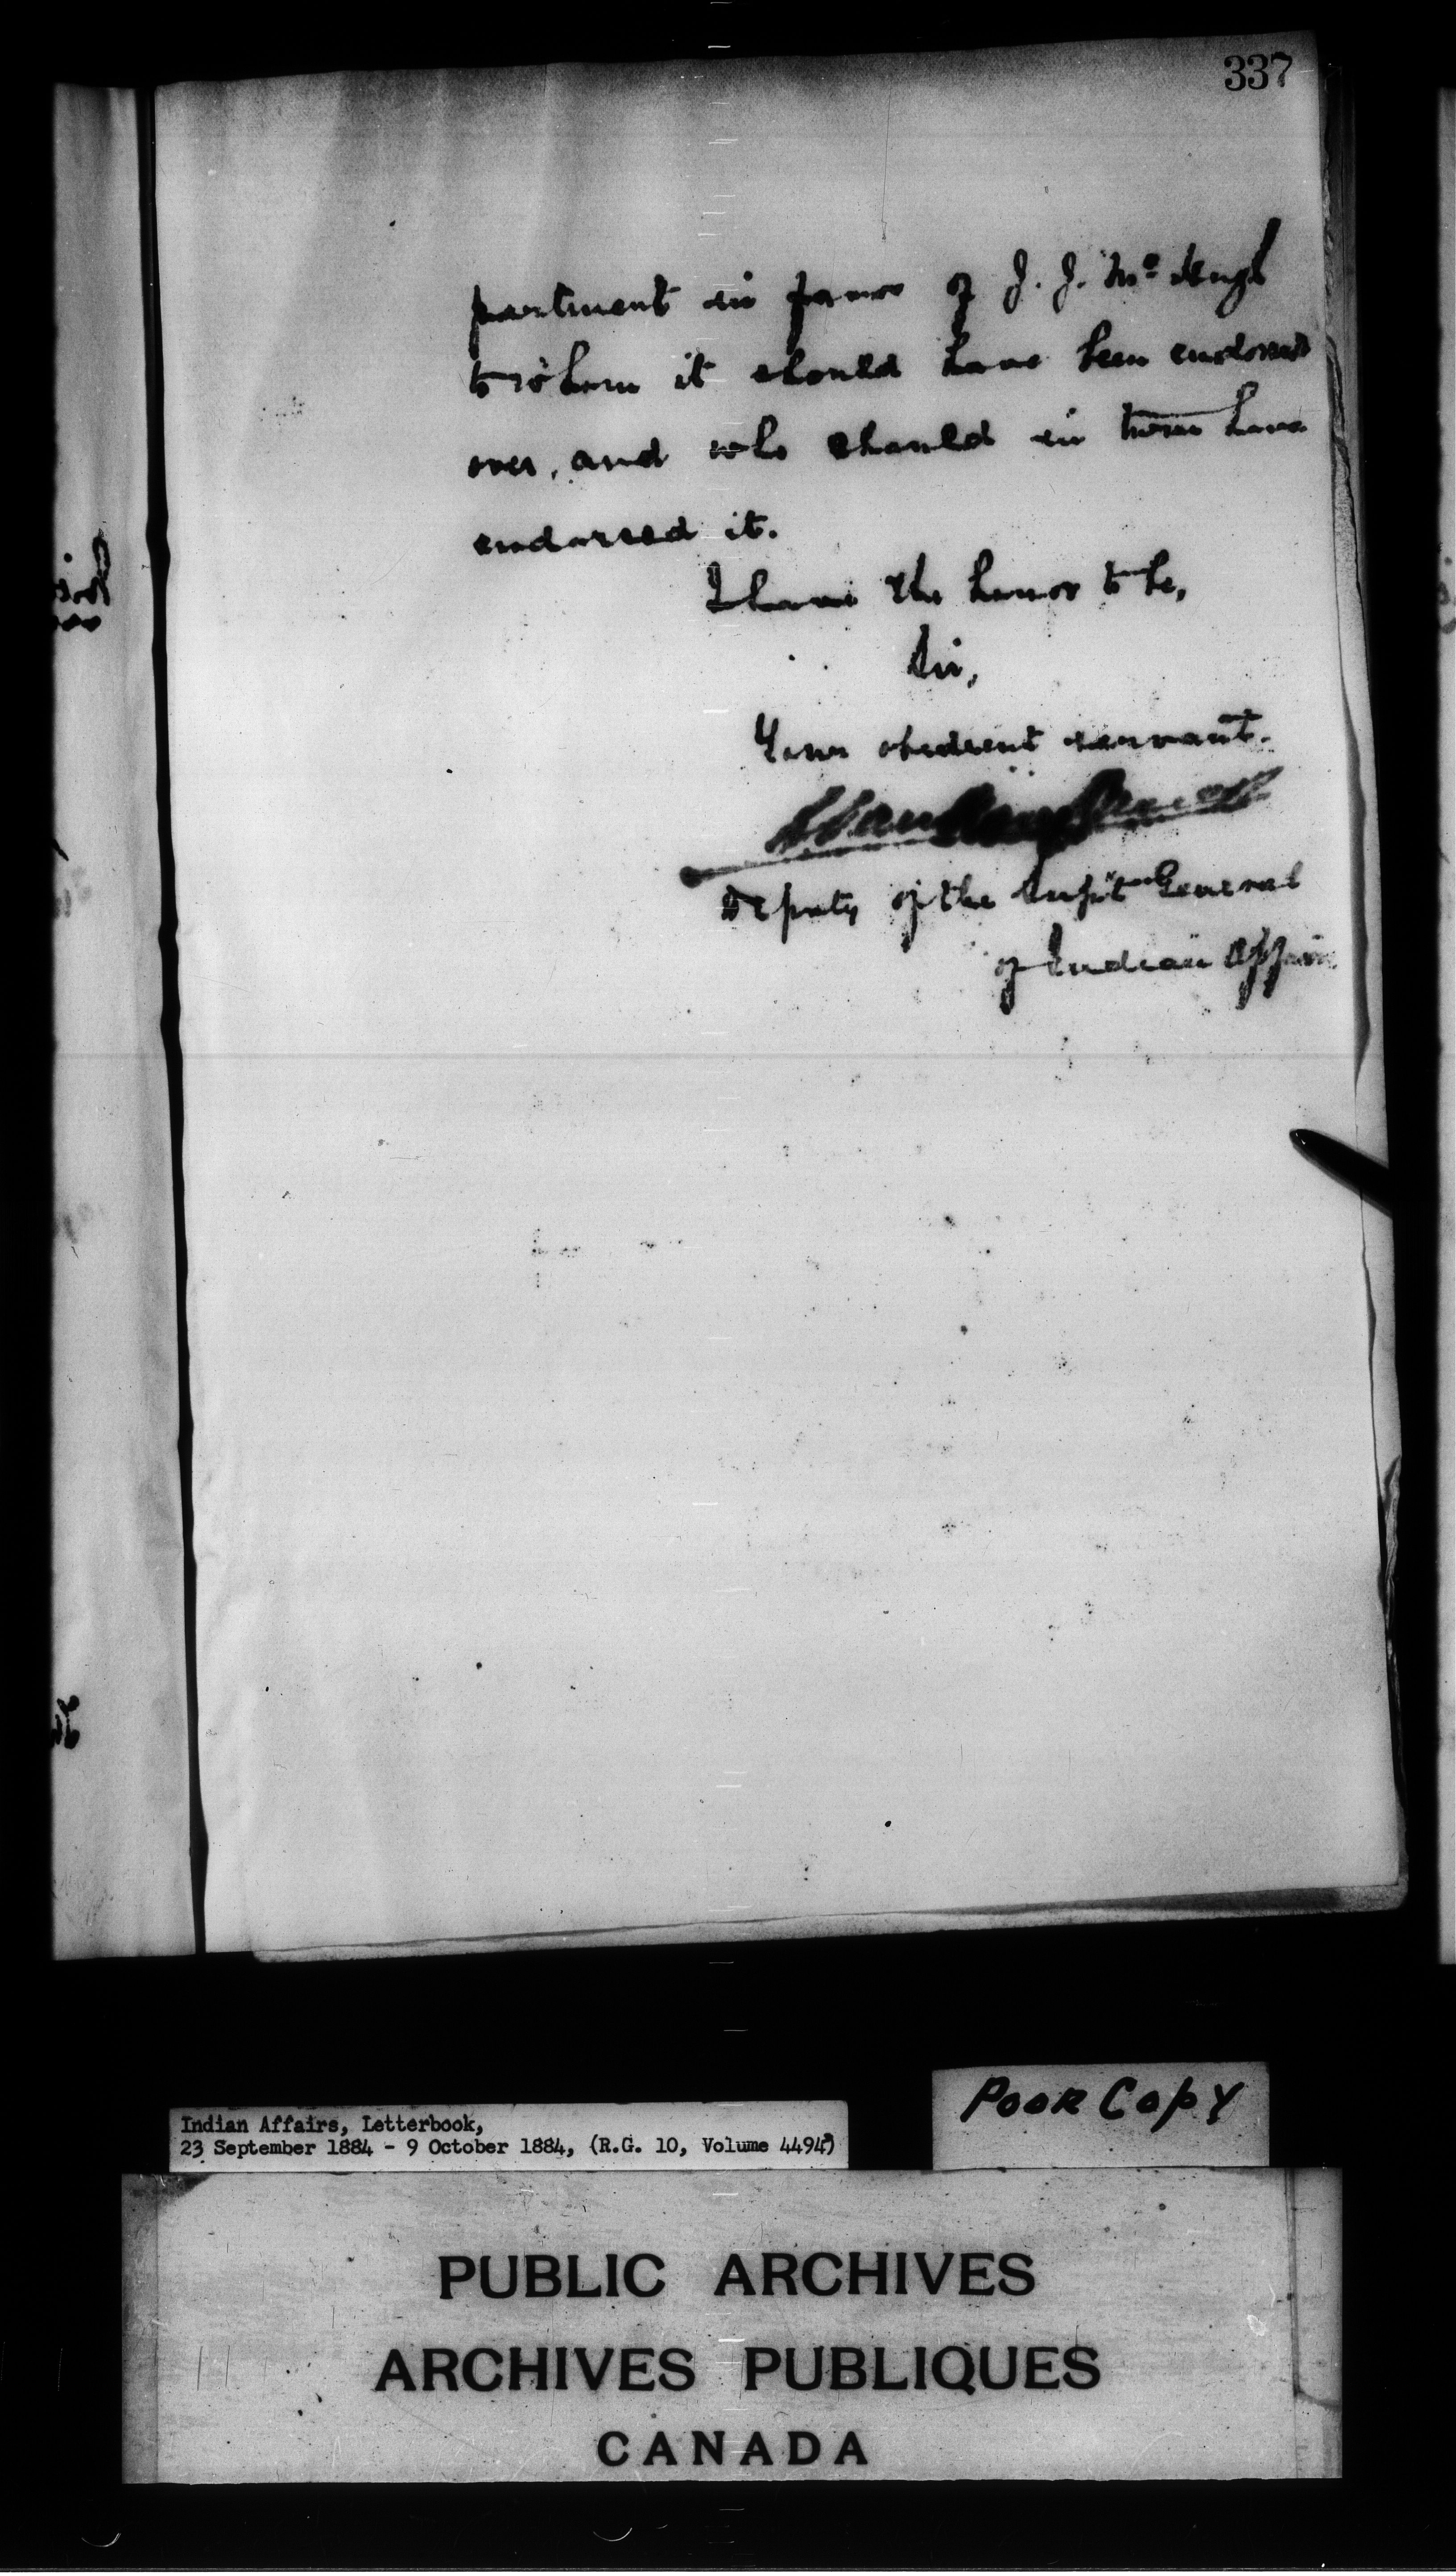 337
partment in favor of J. J. Mc Hugh
to whom it should have been endorsed
over, and who should in turn have
endorsed it.
I have the honor to be,
Sir,
Your obedient servant.
Deputy of the Supt General
of Indian Affairs
POOR COPY
Indian Affairs, Letterbook,
23 September 1884 - 9 October 1884, (R.G. 10, Volume 4494)
PUBLIC ARCHIVES
ARCHIVES PUBLIQUES
CANADA